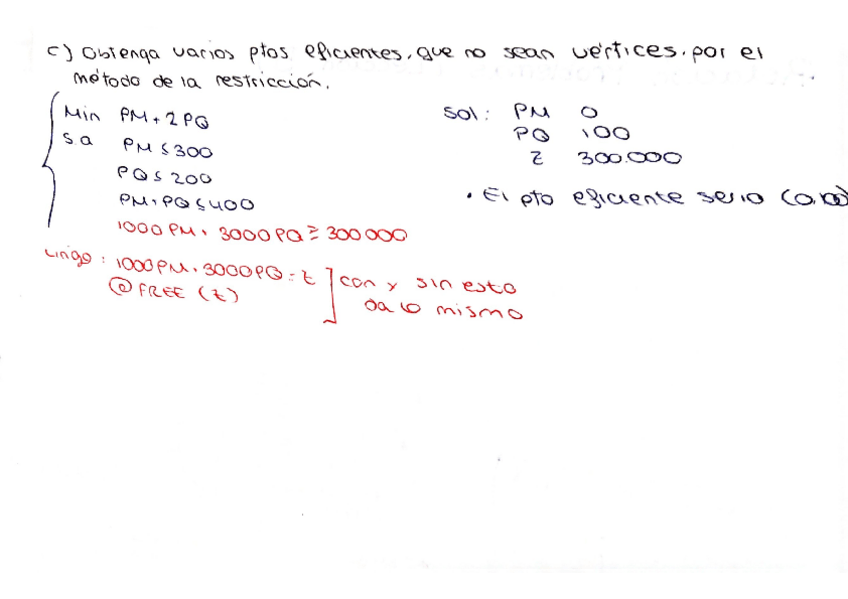 c) Obtenga varios ptos eficientes, que no sean vértices, por el
método de la restricción.
Min PM + 2PQ
s.a PM ≤ 300
PQ ≤ 200
PM + PQ ≤ 400
1000PM + 3000PQ ≥ 300000
Lingo: 1000PM + 3000PQ = Z
@FREE (Z)
con y sin esto
da lo mismo
Sol: PM 0
PQ 100
Z 300.000
• El pto eficiente seria (0,100)